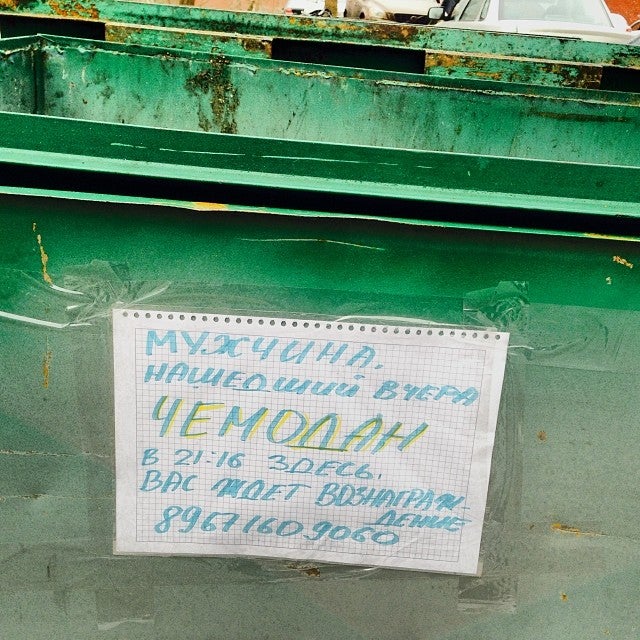 МУЖЧИНА,
НАШЕДШИЙ ВЧЕРА
ЧЕМОДАН
В 21:16 ЗДЕСЬ,
ВАС ЖДЕТ ВОЗНАГРАЖ-
ДЕНИЕ
89671609060